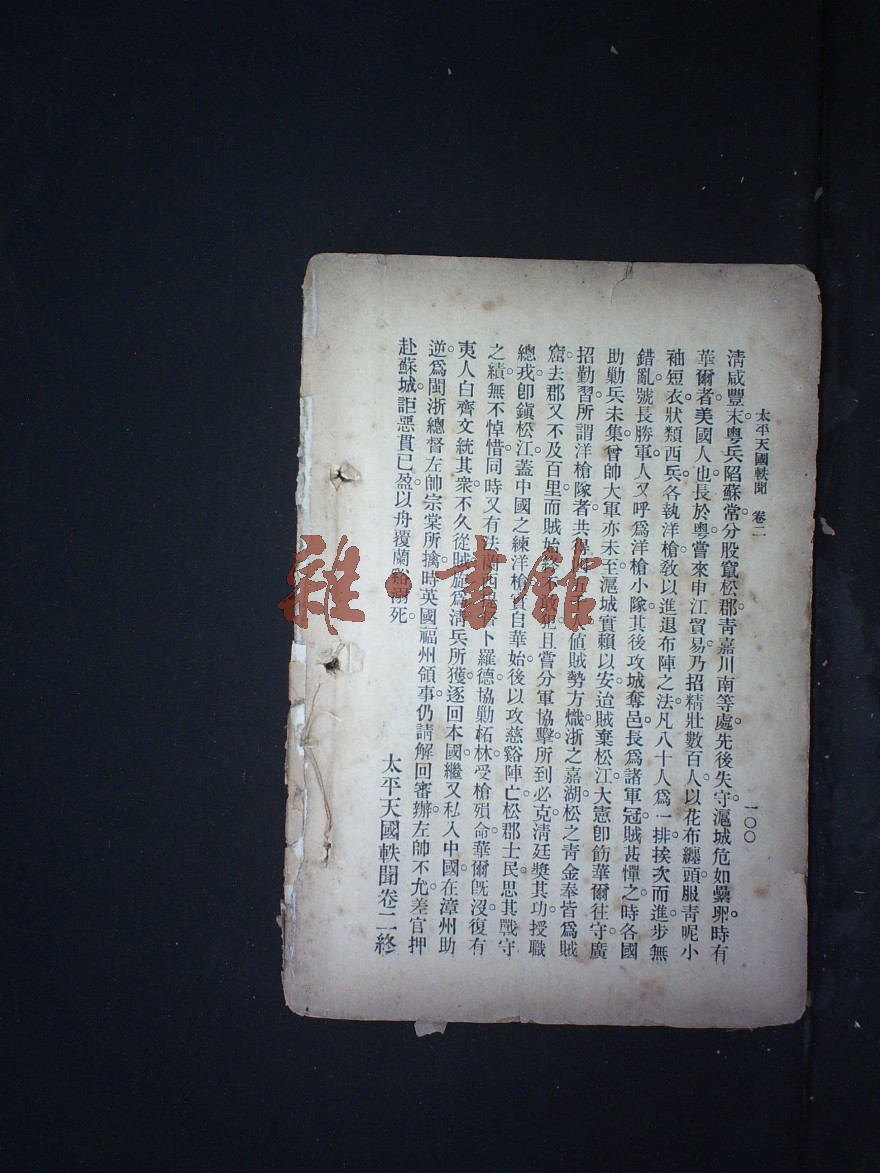 太平天國軼聞　卷二　一〇〇
清咸豐末。粵兵陷蘇常。分股竄松郡。靑嘉川南等處。先後失守。滬城危如纍卵。時有
華爾者。美國人也。長於粵。嘗來申江貿易。乃招精壯數百人。以花布纏頭。服靑呢小
袖短衣。狀類西兵。各執洋槍。敎以進退布陣之法。凡八十人爲一排。挨次而進。步無
錯亂。號長勝軍。人又呼爲洋槍小隊。其後攻城奪邑。長爲諸軍冠。賊甚憚之。時各國
助勦兵未集。曾帥大軍亦未至。滬城實賴以安。迨賊棄松江。大憲卽飭華爾往守。廣
招勤習。所謂洋槍隊者。共 値賊勢方熾。浙之嘉湖。松之靑金奉。皆爲賊
窟。去郡又不及百里。而賊始終不敢犯。且嘗分軍協擊。所到必克。淸廷奬其功。授職
總戎。卽鎭松江。蓋中國之練洋槍。實自華始。後以攻慈谿陣亡。松郡士民思其戰守
之績。無不悼惜。同時又有法蘭西 卜羅德協勦柘林。受槍殞命。華爾旣沒。復有
夷人白齊文統其衆。不久從賊。旋爲淸兵所獲。逐回本國。繼又私入中國。在漳州助
逆。爲閩浙總督左帥宗棠所擒。時英國福州領事仍請解回審辦。左帥不允。差官押
赴蘇城。詎惡貫已盈。以舟覆蘭谿溺死。
太平天國軼聞卷二終
雜·書館